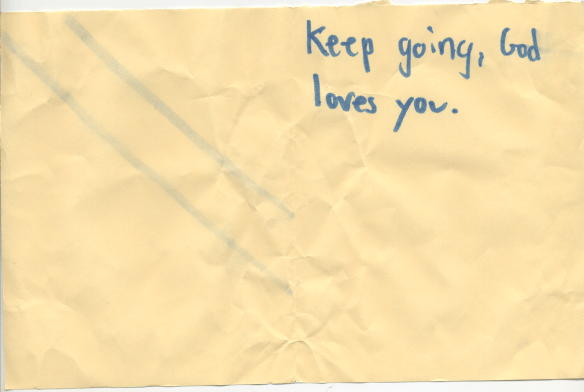 Keep going, God
loves you.